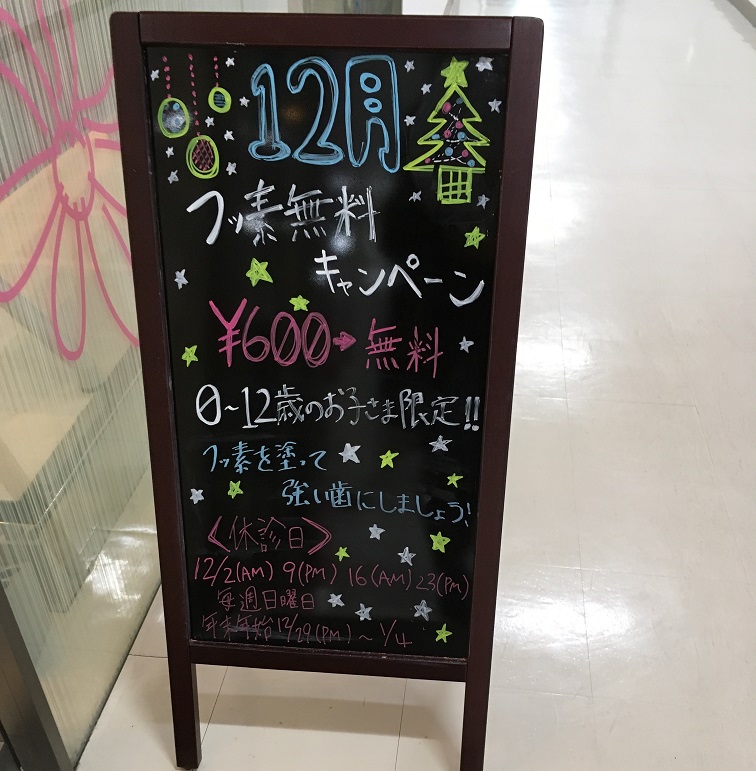 12月
フッ素無料
キャンペーン
¥600→無料
0~12歳のお子さま限定!!
フッ素を塗って
強い歯にしましょう!
《休診日》
12/2(AM) 9(PM) 16(AM) 23(PM)
毎週日曜日
年末年始12/29(PM)~1/4